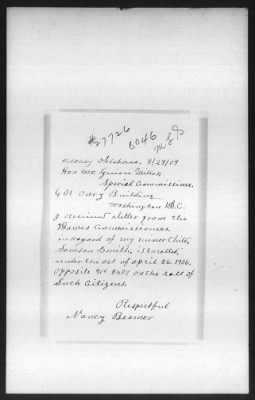 #27726
6046
Oklahoma. 8/28/09
Hon Mr Guion Miller
Special Commissioner.
601 Ouray Building
Washington D.C.
I recieved a letter from the
Dawes Commissioner
in regard of my minor Child,
Samson Smith, Enrolled,
under the act of April 26. 1906,
opposite No 8401 on the roll of
Such Citizens.
Respectful
Nancy Beamer